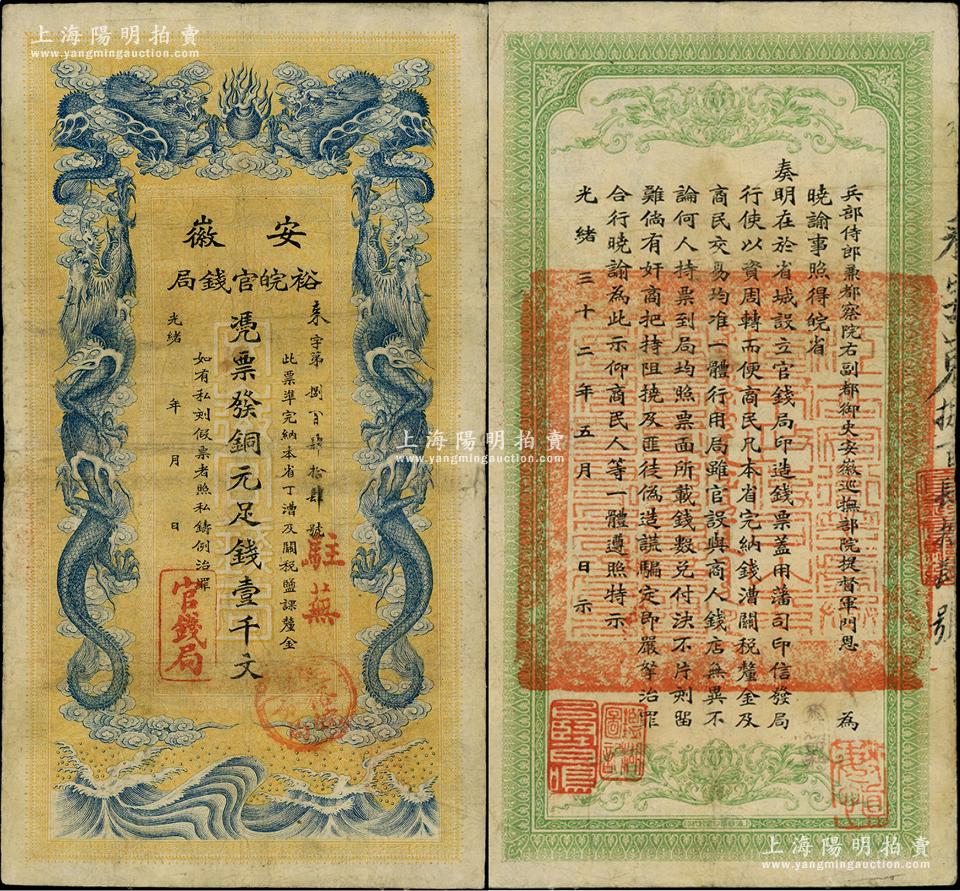 上海陽明拍賣
www.yangmingauction.com
安徽
裕皖官錢局
憑票發銅元足錢壹千文
來字第捌百肆拾肆號
此票準完納本省丁漕及關稅鹽課釐金
如有私刻假票者照私鑄例治罪
光緒 年 月 日
駐蕪
官錢局
兵部侍郎兼都察院右副都御史安徽巡撫部院提督軍門恩 為
曉諭事照得皖省
奏明在於省城設立官錢局印造錢票蓋用藩司印信發局
行使以資周轉而便商民凡本省完納錢漕關稅釐金及
商民交易均准一體行用局雖官設與商人錢店無異不
論何人持票到局均照票面所載錢數兌付決不片刻留
難倘有奸商把持阻撓及匪徒偽造謊騙定即嚴拏治罪
合行曉諭為此示仰商民人等一體遵照特示
光緒三十二年五月 日示
上海陽明拍賣
www.yangmingauction.com
上海陽明拍賣
www.yangmingauction.com